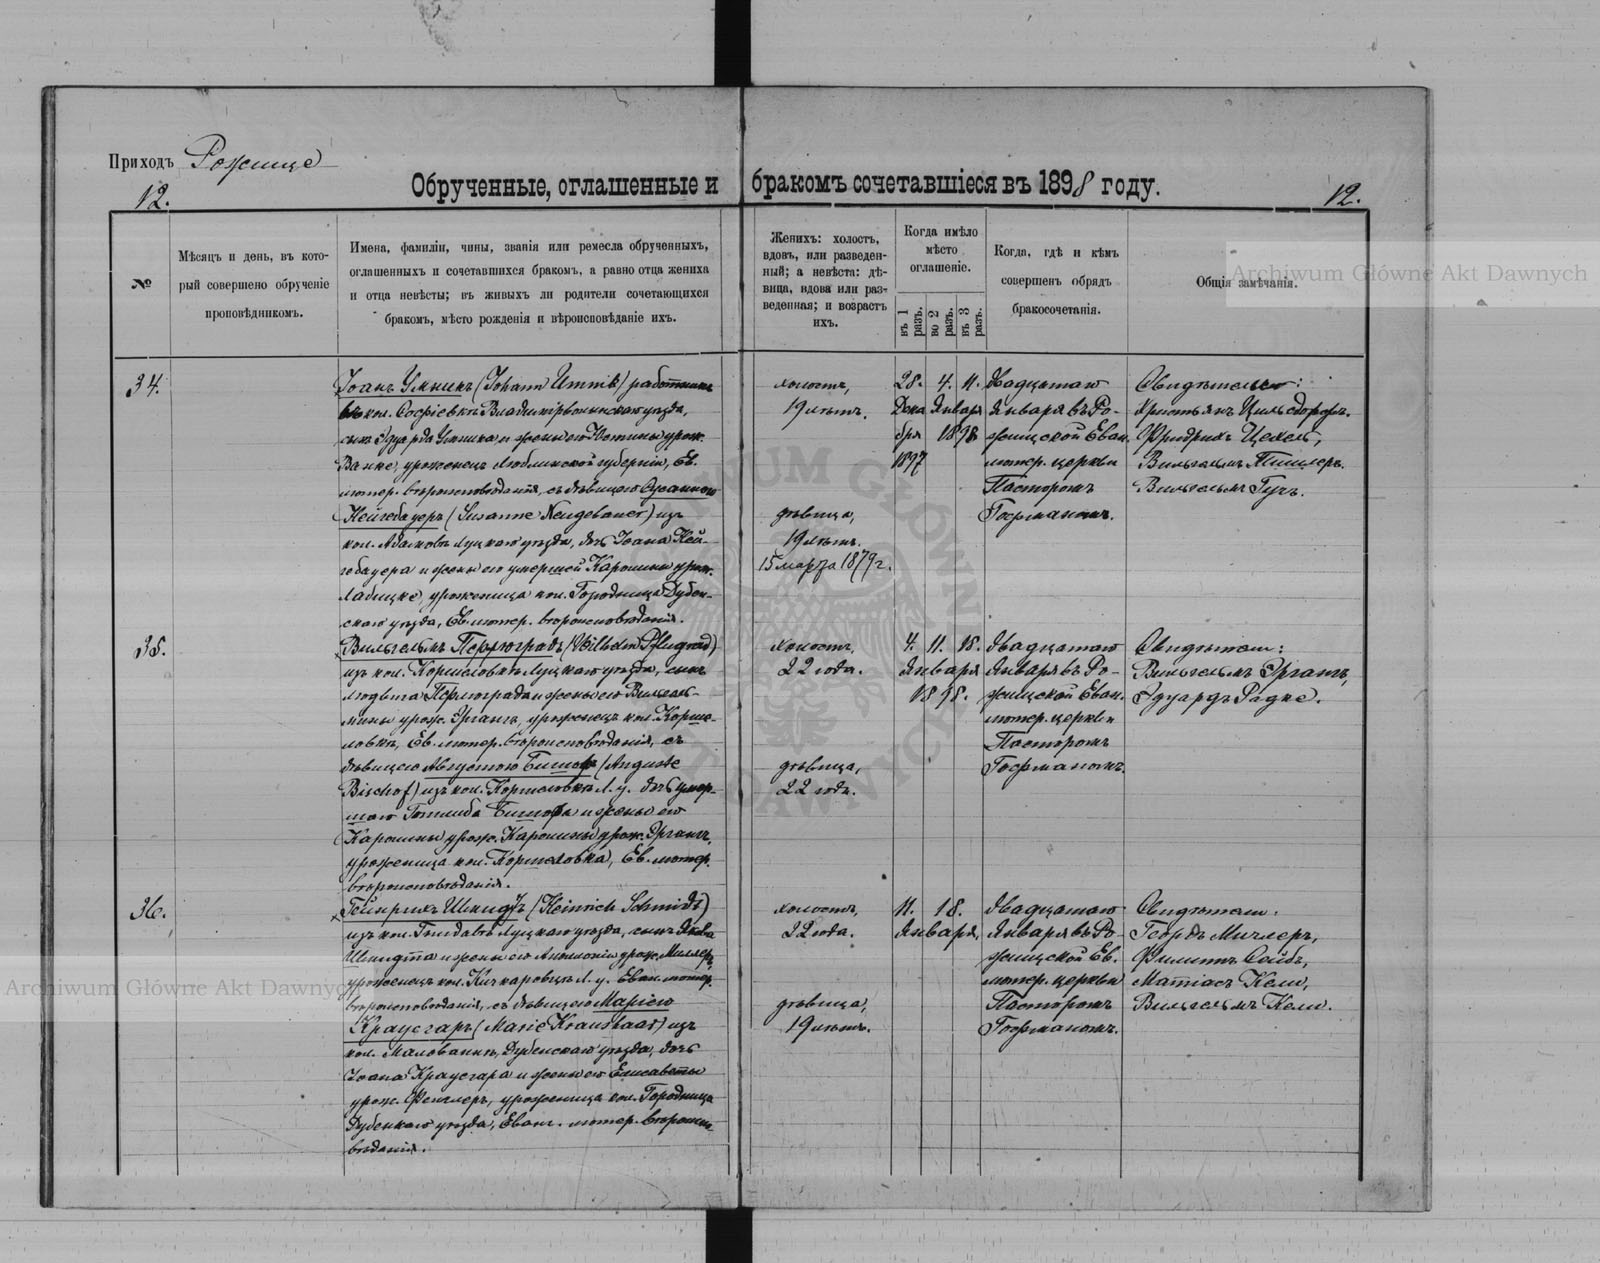 Приходъ Рожище
12.
Обрученные, оглашенные и бракомъ сочетавшіеся въ 1898 году.
12.
№
Мѣсяцъ и день, въ кото-
рый совершено обрученіе
проповѣдникомъ.
Имена, фамиліи, чины, званія или ремесла обрученныхъ,
оглашенныхъ и сочетавшихся бракомъ, а равно отца жениха
и отца невѣсты; въ живыхъ ли родители сочетающихся
бракомъ, мѣсто рожденія и вѣроисповѣданіе ихъ.
Женихъ: холостъ,
вдовъ, или разведен-
ный; а невѣста: дѣ-
вица, вдова или раз-
веденная; и возрастъ
ихъ.
Когда имѣло
мѣсто
оглашеніе.
въ 1 разъ.
во 2 разъ.
въ 3 разъ.
Когда, гдѣ и кѣмъ
совершенъ обрядъ
бракосочетанія.
Общія замѣчанія.
34.
Іоанъ Умникъ (Johann Umnik) работникъ
кол. Софіевкѣ Владимірволынскаго уѣзда,
сынъ Эдуарда Умника и жены его Юстины урож.
Ванке, уроженецъ Люблинской губерніи, Ев.
лютер. вѣроисповѣданія, съ дѣвицею Сусанною
Нейгебауеръ (Susanne Neugebauer) изъ
кол. Адамовъ Луцкаго уѣзда, дочь Іоана Ней-
гебауера и жены его умершей Каролины урож.
уроженица кол. Городница Дубен-
скаго уѣзда, Ев. лютер. вѣроисповѣданія.
холостъ,
19 лѣтъ.
дѣвица,
19 лѣтъ.
15 марта 1879 г.
28. 4. 11.
Дека Января
бря 1898
1897
Двадцатаго
Января въ Ро-
жищской Еван.
лютер. церкви
Пасторомъ
Госрманомъ.
Свидѣтели:
Христьянъ Цильсдорфъ.
Фридрихъ Цехель,
Вильгельмъ
Вильгельмъ Гучъ.
35.
Вильгельмъ Пфлюградъ (Wilhelm Pflugrad)
изъ кол. Кормеловкѣ Луцкаго уѣзда, сынъ
жены его Вильгель-
мины урож. Эргангъ, уроженецъ кол. Корме-
ловкѣ, Ев. лютер. вѣроисповѣданія, съ
дѣвицею Августою Бишофъ (Auguste
Bischof) изъ кол. Кормеловкѣ Л. у. дочь умер-
шаго Готлиба Бишофъ и жены его
Каролины урож. Каролины урож. Эргангъ,
уроженица кол. Кормеловка, Ев. лютер.
вѣроисповѣданія.
холостъ,
22 года.
дѣвица,
22 годъ.
4. 11. 18.
Января
1898.
Двадцатаго
Января въ Ро-
жищской Еван.
лютер. церкви
Пасторомъ
Госрманомъ.
Свидѣтели:
Вильгельмъ Эргангъ,
Эдуардъ Радке.
36.
Гейнрихъ Шмидтъ (Heinrich Schmidt)
изъ кол. Луцкаго уѣзда, сынъ Якова
Шмидта и жены его Аполоніи урож. Миллеръ,
уроженецъ кол. Л. у. Еван. лютер.
вѣроисповѣданія, съ дѣвицею Маріею
Краусгаръ (Marie Kraushaar) изъ
кол. Малованкѣ, Дубенскаго уѣзда, дочь
Іоана Краусгара и жены его Елисаветы
урож. уроженица кол. Городница
Дубенскаго уѣзда, Еван. лютер. вѣроиспо-
вѣданія.
холостъ,
22 года.
дѣвица,
19 лѣтъ.
11. 18.
Января,
Двадцатаго
Января въ Ро-
жищской Ев.
лютер. церкви
Пасторомъ
Госрманомъ.
Свидѣтели:
Георгъ Миллеръ,
Филипъ
Матіасъ Кели,
Вильгельмъ Кели.
Archiwum Główne Akt Dawnych
Archiwum Główne Akt Dawnych